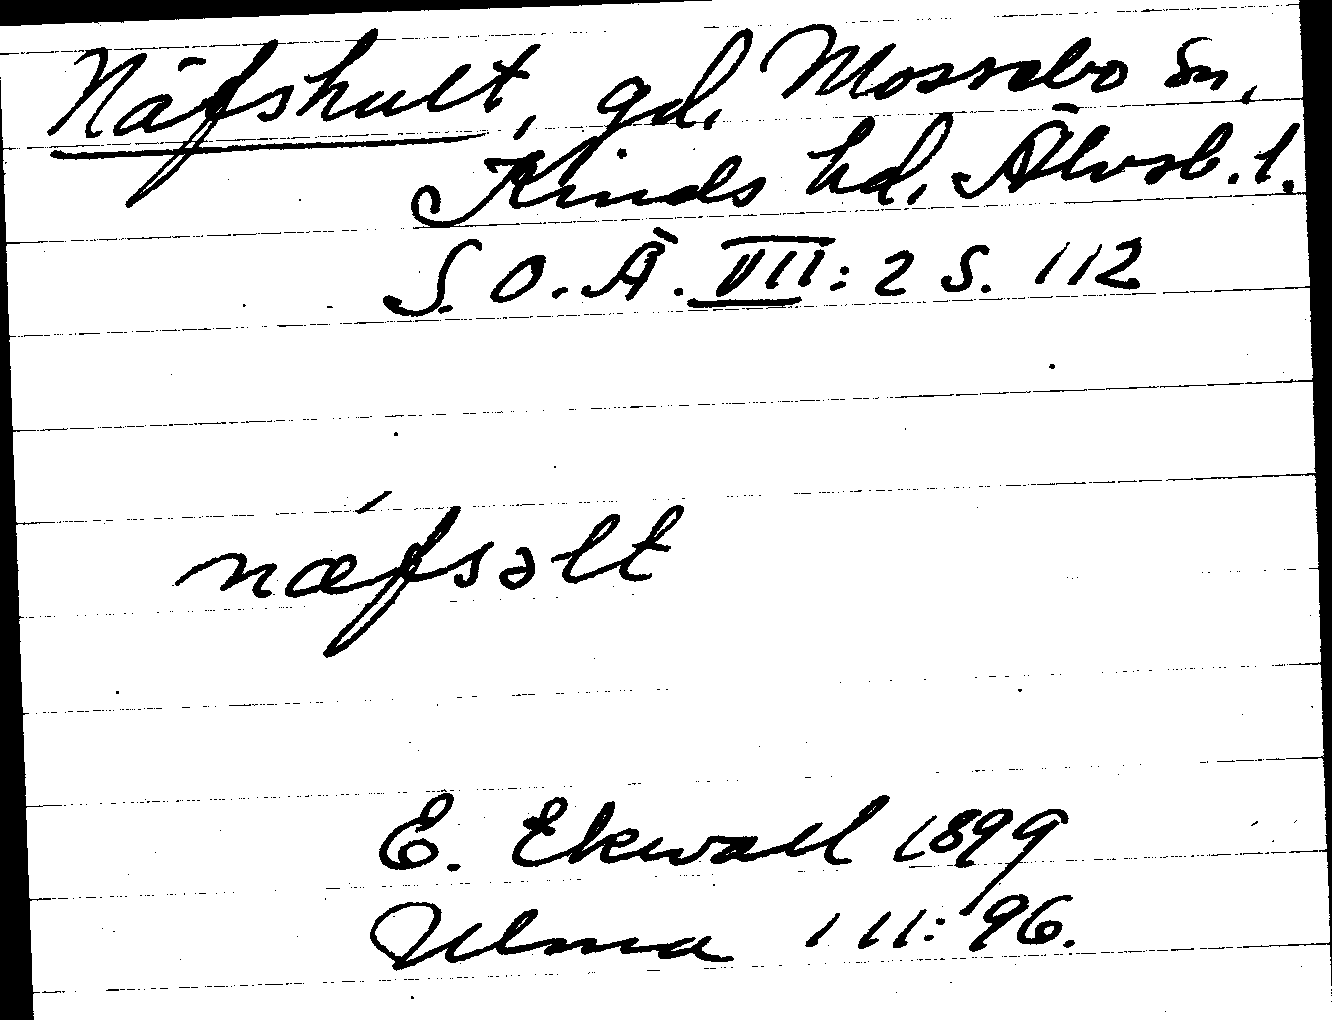 Näfshult, gd, Mossebo sn,
Kinds hd, Älvsb. l.
S. O. Ä. VII: 2 S. 112
næ´fsəlt
E. Ekwall 1899
Ulma 111: 96.